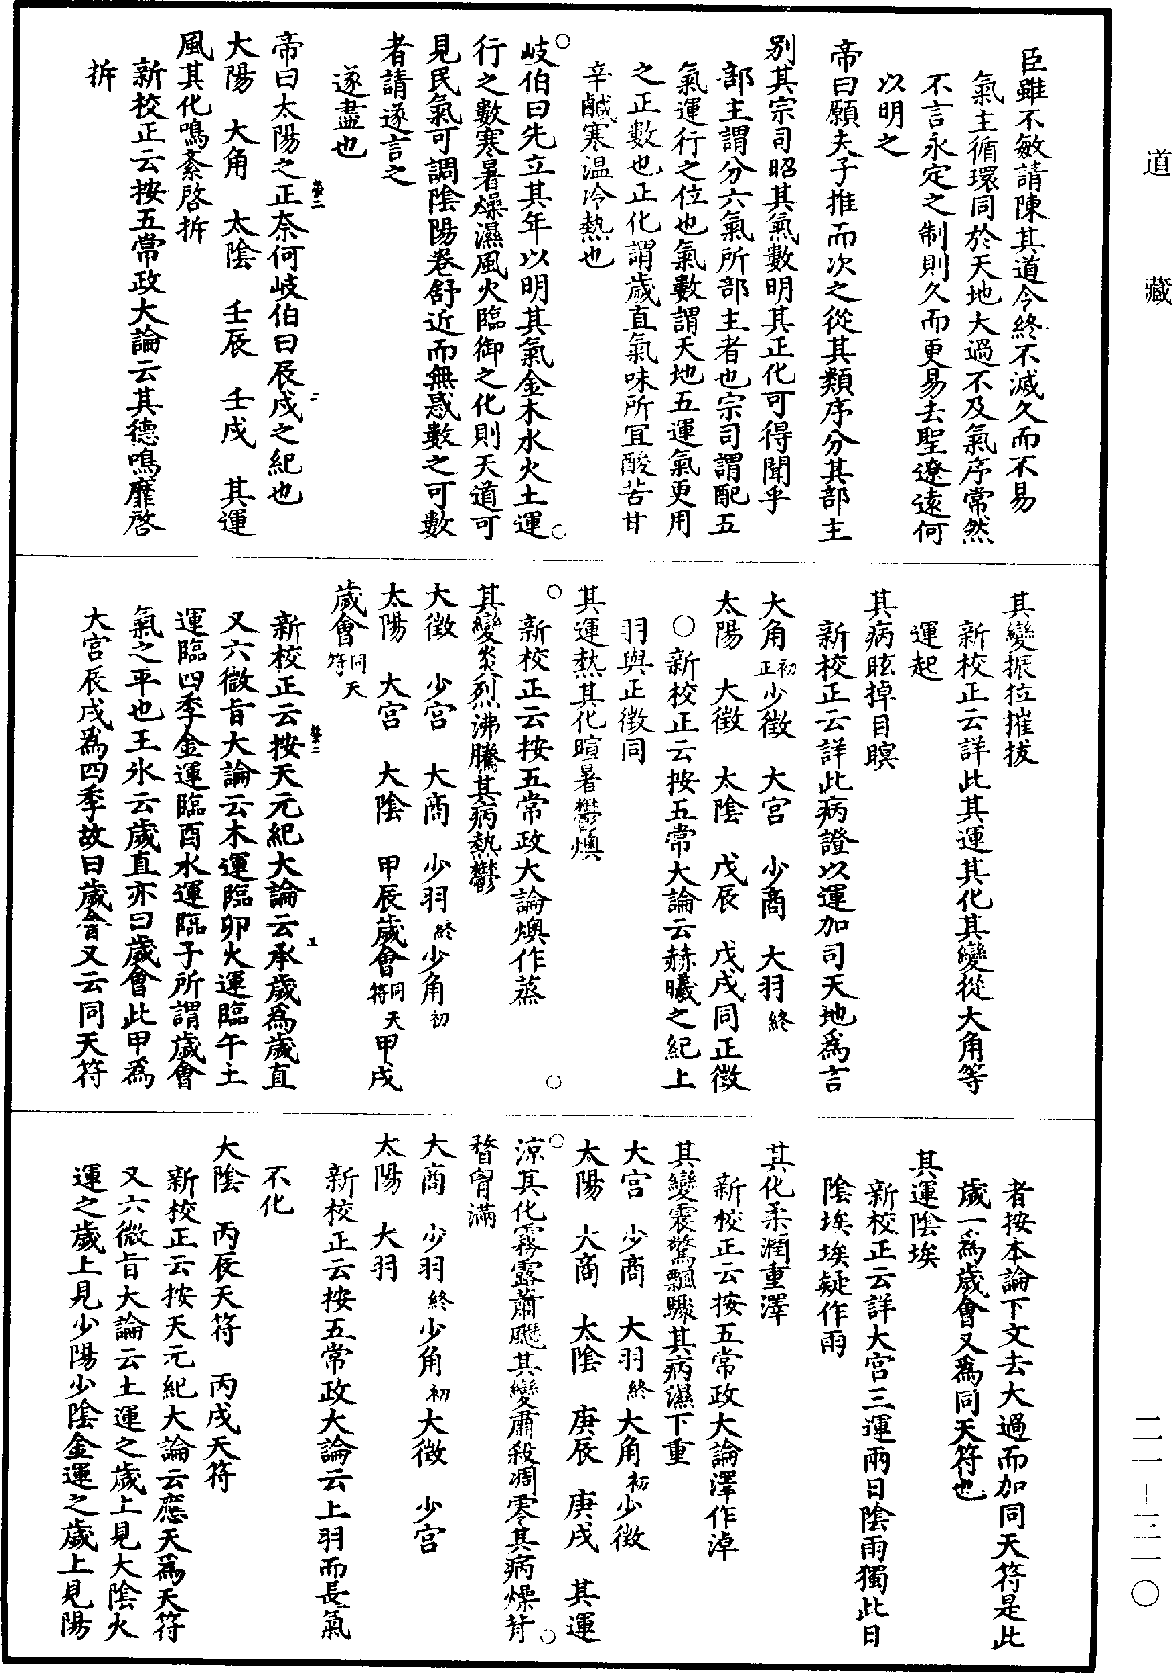 道藏
二一—三一〇
臣雖不敏請陳其道令終不滅久而不易
氣主循環同於天地大過不及氣序常然
不言永定之制則久而更易去聖遼遠何
以明之
帝曰願夫子推而次之從其類序分其部主
別其宗司昭其氣數明其正化可得聞乎
部主謂分六氣所部主者也宗司謂配五
氣運行之位也氣數謂天地五運氣更用
之正數也正化謂歲直氣味所宜酸苦甘
辛鹹寒温冷熱也
岐伯曰先立其年以明其氣金木水火土運
行之數寒暑燥濕風火臨御之化則天道可
見民氣可調陰陽卷舒近而無惑數之可數
者請遂言之
遂盡也
帝曰太陽之正奈何岐伯曰辰戌之紀也
大陽 大角 太陰 壬辰 壬戌 其運
風其化鳴紊啓拆
新校正云按五常政大論云其德鳴靡啓
拆
其變振拉摧拔
新校正云詳此其運其化其變從大角等
運起
其病眩掉目瞑
新校正云詳此病證以運加司天地爲言
大角初正少徵 大宮 少商 大羽終
太陽 大徵 太陰 戊辰 戊戌同正徵
○新校正云按五常大論云赫曦之紀上
羽與正徵同
其運熱其化暄暑鬱燠
新校正云按五常政大論燠作蒸
其變炎烈沸騰其病熱鬱
大徵 少宮 大商 少羽終少角初
太陽 大宮 大陰 甲辰歲會同天符甲戌
歲會同天符
新校正云按天元紀大論云承歲為歲直
又六微旨大論云木運臨卯火運臨午土
運臨四季金運臨酉水運臨子所謂歲會
氣之平也王氷云歲直亦曰歲會此甲為
大宮辰戌爲四季故曰歲會又云同天符
者按本論下文去大過而加同天符是此
歲一爲歲會又爲同天符也
其運陰埃
新校正云詳大宮三運兩曰陰雨獨此曰
陰埃埃疑作雨
其化柔潤重澤
新校正云按五常政大論澤作淖
其變震驚飄驟其病濕下重
大宮 少商 大羽終大角初少徵
太陽 大商 太陰 庚辰 庚戌 其運
涼其化霧露蕭飋其變肅殺凋零其病燥背
瞀胷滿
大商 少羽終少角初大徵 少宮
太陽 大羽
新校正云按五常政大論云上羽而長氣
不化
大陰 丙辰天符 丙戌天符
新校正云按天元紀大論云應天爲天符
又六微旨大論云土運之歲上見大陰火
運之歲上見少陽少陰金運之歲上見陽